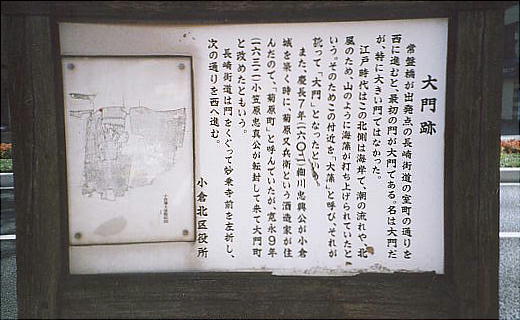 大門跡
常盤橋が出発点の長崎街道の室町の通りを
西に進むと、最初の門が大門である。名は大門だ
が、特に大きい門ではなかった。
江戸時代はこの北側は海岸で、潮の流れや、北
風のため、山のように海藻が打ち上げられていたと
いう。そのためこの付近を「大藻」と呼び、それが
訛って「大門」となったという。
また、慶長7年(一六〇二)細川忠興公が小倉
城を築く時に、菊原又兵衛という酒造家が住
んだので、「菊原町」と呼んでいたが、寛永9年
(一六三二)小笠原忠真公が転封して来て大門町
と改めたともいう。
長崎街道は門をくぐって妙乗寺前を左折し、
次の通りを西へ進む。
小倉北区役所